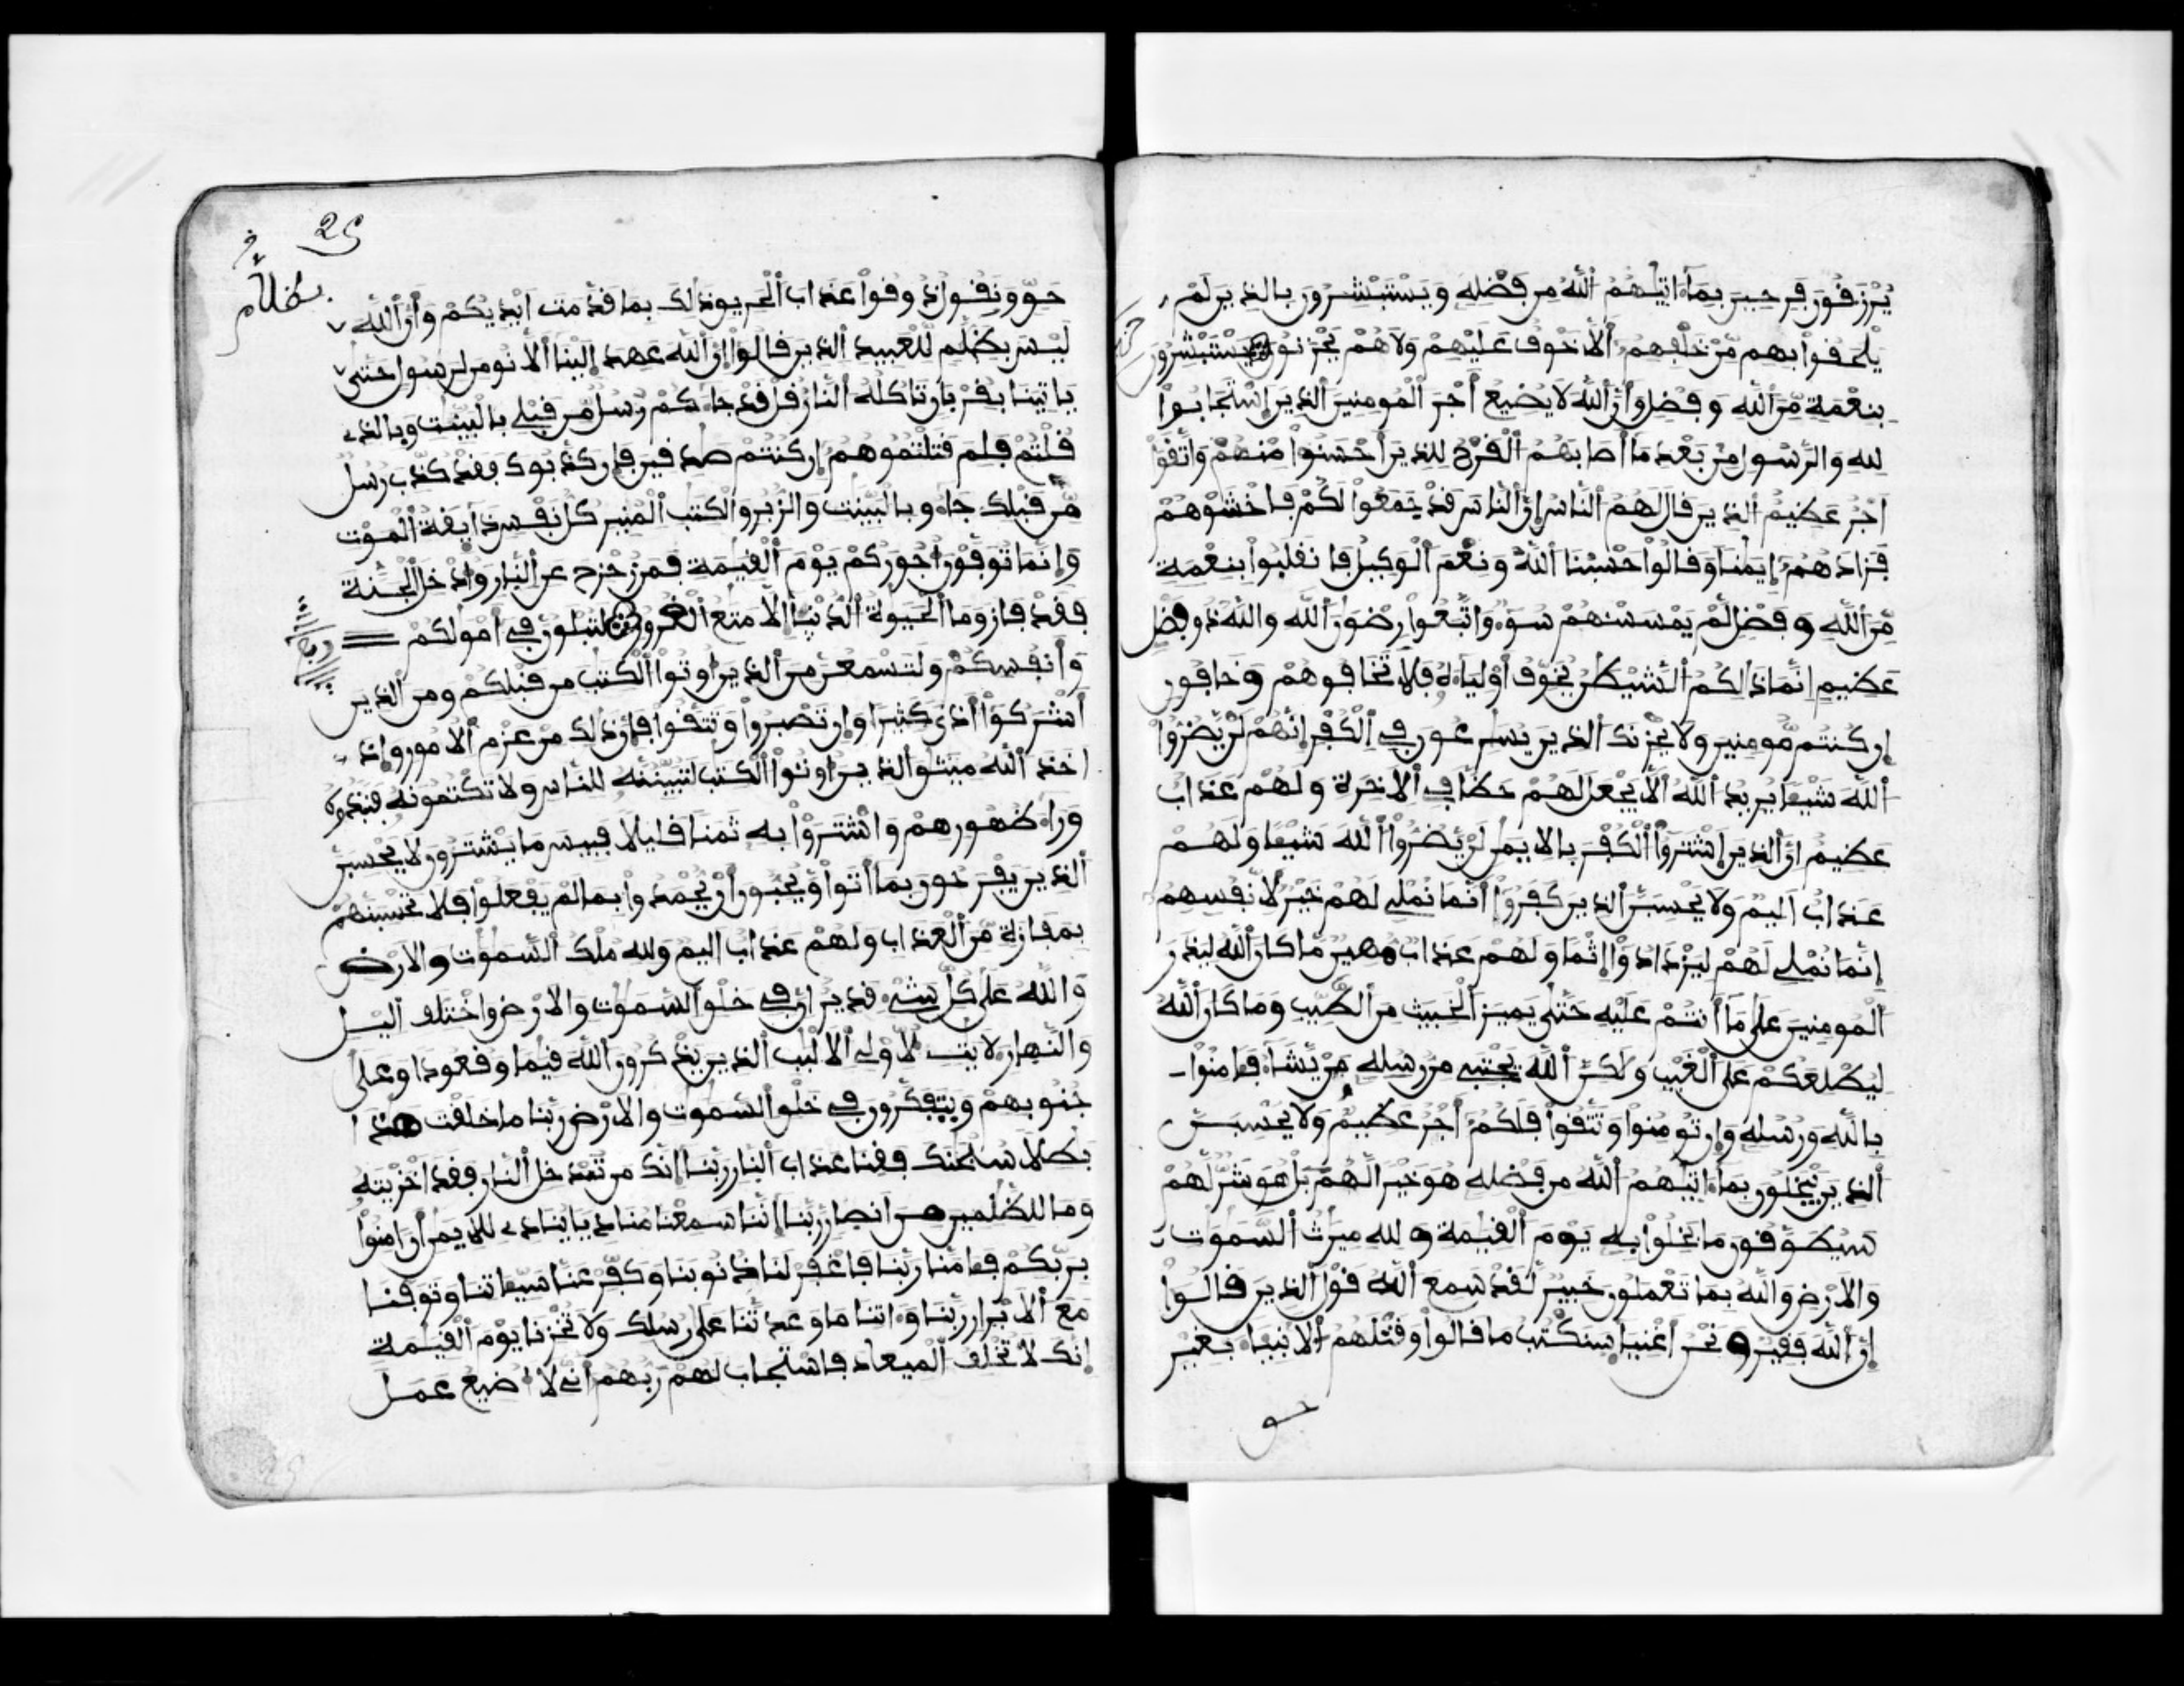 يرزقون فرحين بما ءاتيهم الله من فضله ويستبشرون بالذين لم
يلحقوا بهم من خلفهم ألا خوف عليهم ولا هم يحزنون يستبشرون
بنعمة من الله وفضل وأن الله لا يضيع أجر المومنين الذين استجابوا
لله والرسول من بعد ما أصابهم القرح للذين أحسنوا منهم واتقوا
أجر عظيم الذين قال لهم الناس إن الناس قد جمعوا لكم فاخشوهم
فزادهم إيمنا وقالوا حسبنا الله ونعم الوكيل فانقلبوا بنعمة
من الله وفضل لم يمسسهم سوء واتبعوا رضون الله والله ذو فضل
عظيم انما ذالكم الشيطن يخوف أولياءه فلا تخافوهم وخافون
إن كنتم مومنين ولا يحزنك الذين يسرعون في الكفر إنهم لن يضروا
الله شيئا يريد الله ألا يجعل لهم حظا في الاخرة ولهم عذاب
عظيم ان الذين اشتروا الكفر بالايمن لن يضروا الله شيئا ولهم
عذاب اليم ولا يحسبن الذين كفروا أنما نملي لهم خير لانفسهم
إنما نملي لهم ليزدادوا إثما ولهم عذاب مهين ما كان الله ليذر
المومنين على ما أنتم عليه حتى يميز الخبيث من الطيب وما كان الله
ليطلعكم على الغيب ولكن الله يجتبي من رسله من يشاء فءامنوا
بالله ورسله وإن تومنوا وتتقوا فلكم أجر عظيم ولا يحسبن
الذين يبخلون بما ءاتيهم الله من فضله هو خيرا لهم بل هو شر لهم
سيطوقون ما بخلوا به يوم القيمة ولله ميرث السموت
والارض والله بما تعملون خبير لقد سمع الله قول الذين قالوا
إن الله فقير ونحن أغنياء سنكتب ما قالوا وقتلهم الانبياء بغير
حق
25
بظلام
حق ونقول ذوقوا عذاب الحريق ذلك بما قدمت أيديكم وأن الله
ليس بظلم للعبيد الذين قالوا إن الله عهد إلينا ألا نومن لرسول حتى
ياتينا بقربان تاكله النار قل قد جاءكم رسل من قبلي بالبينت وبالذي
قلتم فلم قتلتموهم إن كنتم صدقين فإن كذبوك فقد كذب رسل
من قبلك جاءو بالبينت والزبر والكتب المنير كل نفس ذايقة الموت
وإنما توفون أجوركم يوم القيمة فمن زحزح عن النار وادخل الجنة
فقد فاز وما الحيوة الدنيا إلا متع الغرور لتبلون في أمولكم
وأنفسكم ولتسمعن من الذين اوتوا الكتب من قبلكم ومن الذين
أشركوا أذى كثيرا وإن تصبروا وتتقوا فإن ذلك من عزم الامور وإذ
اخذ الله ميثق الذين اوتوا الكتب لتبيننه للناس ولا تكتمونه فنبذوه
وراء ظهورهم واشتروا به ثمنا قليلا فبيس ما يشترون لا يحسبن
الذين يفرحون بما أتوا ويحبون أن يحمدوا بما لم يفعلوا فلا تحسبنهم
بمفازة من العذاب ولهم عذاب اليم ولله ملك السموت والارض
والله على كل شيء قدير ان في خلق السموت والارض واختلف اليل
والنهار لايت لاولي الالبب الذين يذكرون الله قيما وقعودا وعلى
جنوبهم ويتفكرون في خلق السموت والارض ربنا ما خلقت هذا
بطلا سبحنك فقنا عذاب النار ربنا إنك من تدخل النار فقد اخزيته
وما للظلمين من انصار ربنا إننا سمعنا مناديا ينادي للايمن أن امنوا
بربكم فءامنا ربنا فاغفر لنا ذنوبنا وكفر عنا سيئاتنا وتوفنا
مع الابرار ربنا وءاتنا ما وعدتنا على رسلك ولا تخزنا يوم القيمة
إنك لا تخلف الميعاد فاستجاب لهم ربهم أني لا اضيع عمل